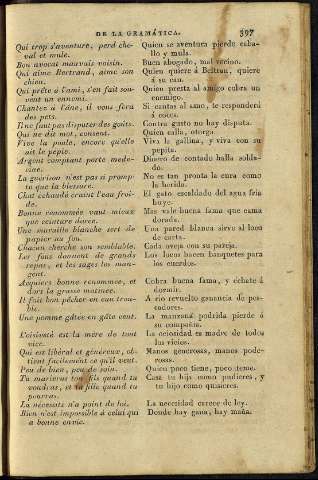 DE LA GRAMÁTICA. 397
Qui trop s'aventure, perd che-
val et mule.
Bon avocat mauvais voisin.
Qui aime Bertrand, aime son
chien.
Qui prête à l'ami, s'en fait sou-
vent un ennemi.
Chantez à l'âne, il vous fera
des pets.
Il ne faut pas disputer des goûts.
Qui ne dit mot, consent.
Vive la poule, encore qu'elle
ait le pépie.
Argent comptant porte mede-
cine.
La guérison n'est pas si promp-
te que la blesure.
Chat echaudé craint l'eau froi-
de.
Bonne renommée vaut mieux
que ceinture dorée.
Une muraille blanche sert de
papier au fou.
Chacun cherche son semblable.
Les fous donnent de grands
repas, et les sages les man-
gent.
Acquiers bonne renommée, et
dors la grasse matinée.
Il fait bon pêcher en eau trou-
ble.
Une pomme gâtée en gâte vent.
L'oisiveté est la mère de tout
vice.
Qui est libéral et généreux, ob-
tient facilement ce qu'il veut.
Peu de bien, peu de soin.
Tu marieras ton fils quand tu
voudras, et ta fille quand tu
pourras.
La nécessité n'a point de loi.
Rien n'est impossible à celui qui
a bonne envie.
Quien se aventura pierde caba-
llo y mula.
Buen abogado, mal vecino.
Quien quiere á Beltran, quiere
á su can.
Quien presta al amigo cobra un
enemigo.
Si cantas al asno, te responderá
á coces.
Contra gusto no hay disputa.
Quien calla, otorga.
Viva la gallina, y viva con su
pepita.
Dinero de contado halla solda-
do.
No es tan pronta la cura como
la herida.
El gato escaldado del agua fria
huye.
Mas vale buena fama que cama
dorada.
Una pared blanca sirve al loco
de carta.
Cada oveja con su pareja.
Los locos hacen banquetes para
los cuerdos.
Cobra buena fama, y échate á
dormir.
A rio revuelto ganancia de pes-
cadores.
La manzana podrida pierde á
su compaña.
La ociosidad es madre de todos
los vicios.
Manos generosas, manos pode-
rosas.
Quien poco tiene, poco teme.
Casa tu hija como pudieres, y
tu hijo como quisieres.
La necesidad carece de ley.
Donde hay gana, hay maña.